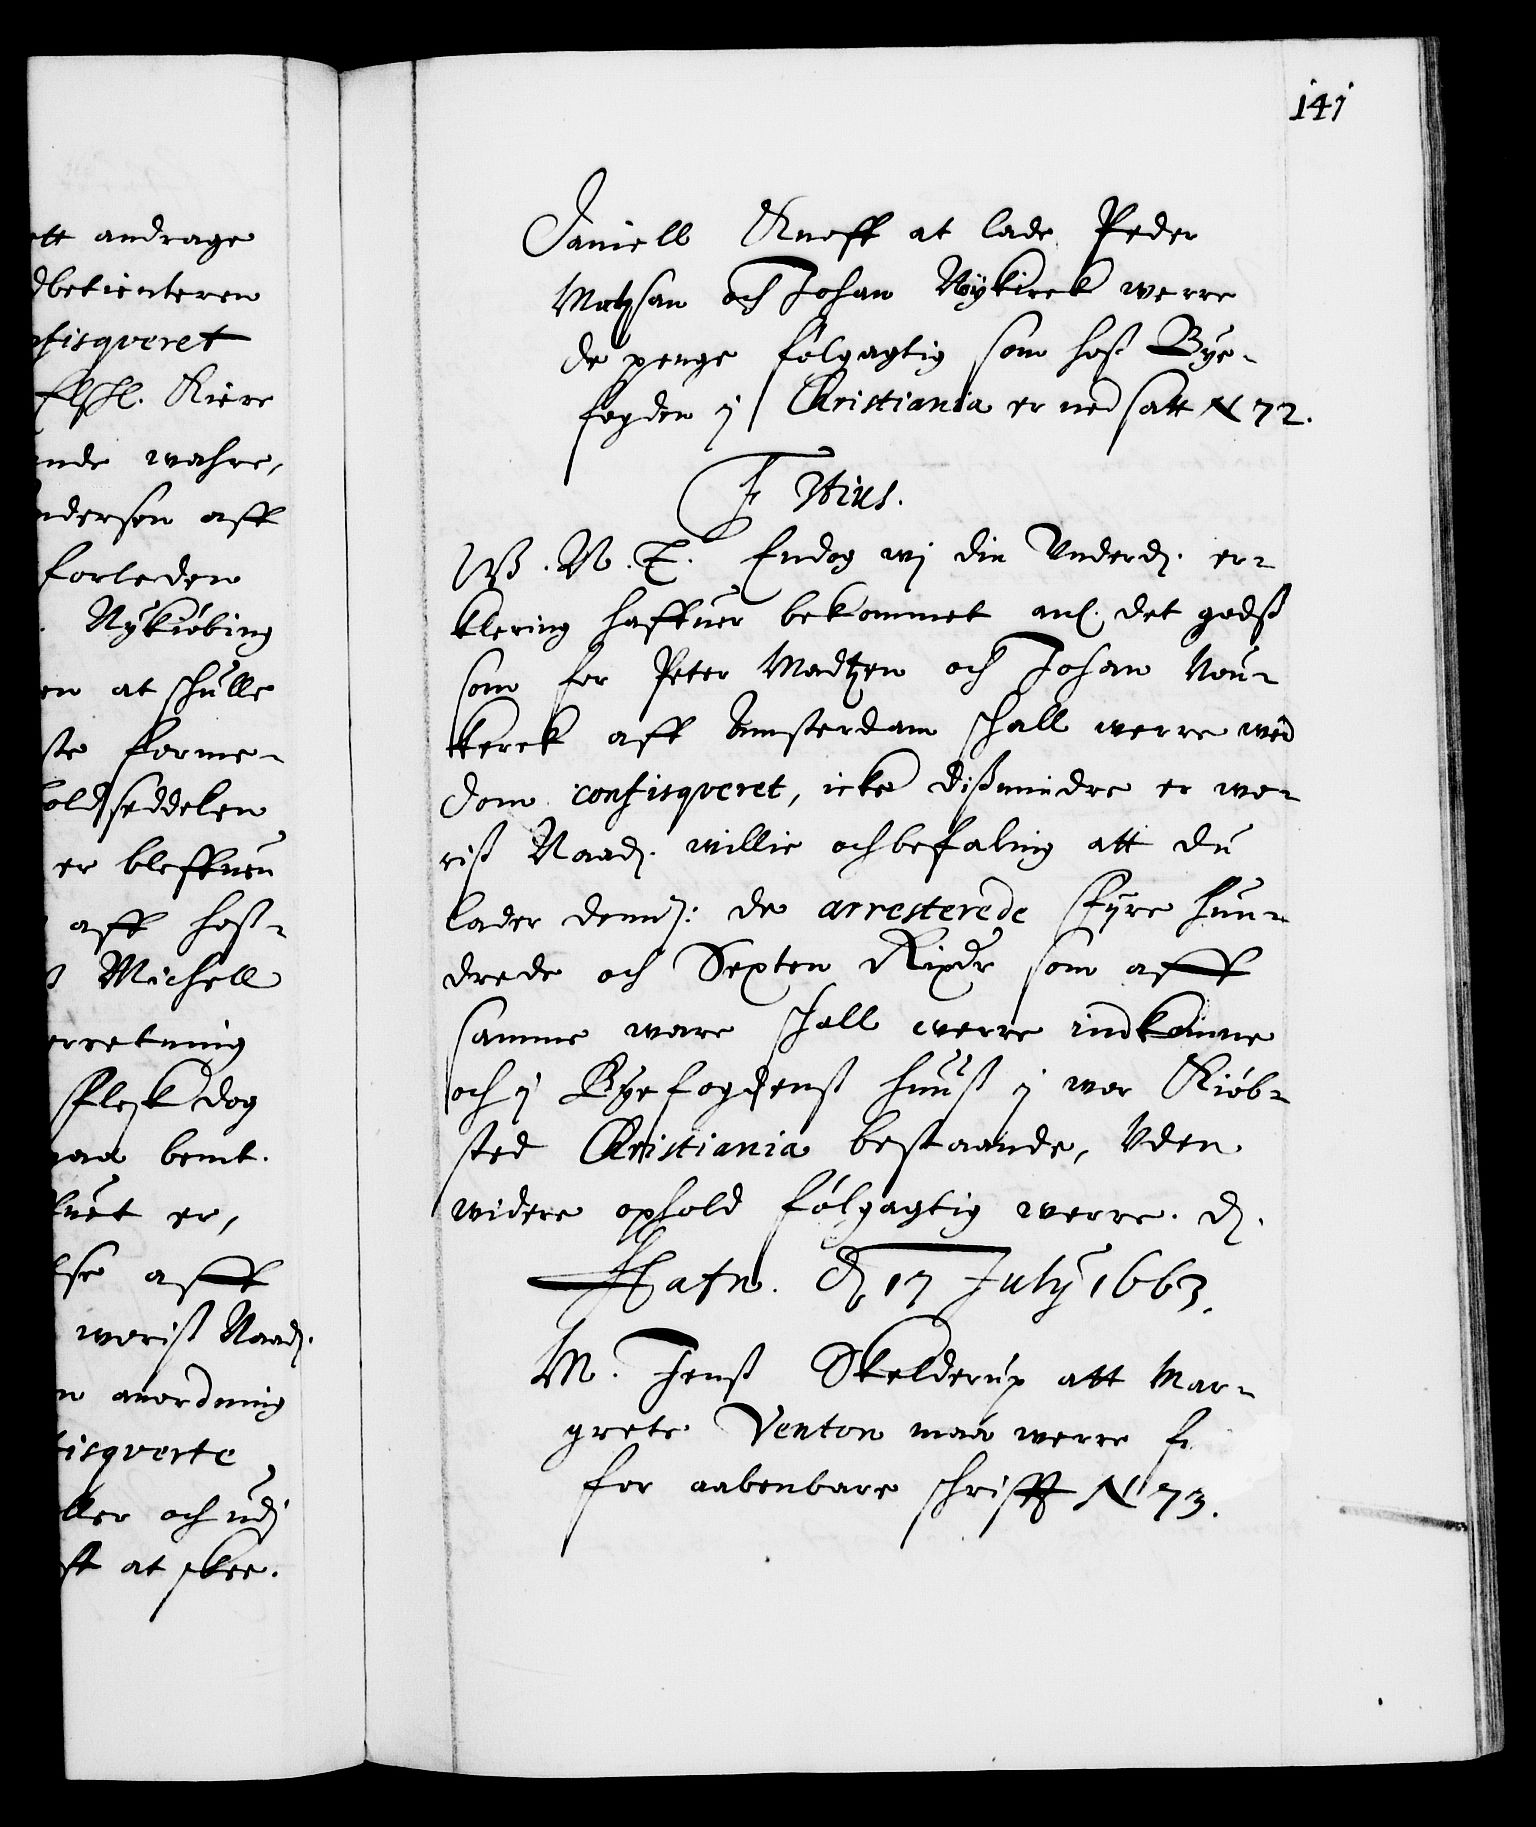 ett andrage
dbetienteren
nfisqveret
Kiere
ende wahre,
nderson aff
forleden
Nykiøbing
en at schulle
ste forme-
oldsseddelen
er bleffuen
aff hoß-
Michell
erretning
flesk dog
paa bemt.
er,
lse aff
woriß Naad.
n anordning
fisqverte
ller och udj
st at skee.
141
Daniell Knoff at lade Peder
Matzsøn och Johan Nykirck werre
de penge følgagtig som hoß Bye-
fogden j Christiania er nedsatt N 72.
F 3tius.
W. G. T. Endog wj din Underd. er-
klering haffuer bekommet anl. det godß
som for Peter Madtzen och Johan Nou-
kerck aff Amsterdam schall werre wed
dom confisqveret, icke dißmindre er wo-
riß Naad. willie och befaling att du
lader dennem: de arresterede Fyre hun-
drede och Sexten Rixdr som aff
samme ware schall werre indkomne
och j Byefogdenß huuß j wor Kiøb-
sted Christiania bestaaende, Uden
widere ophold følgagtig werre. D.
Hafn. d. 17 July 1663.
M. Jenß Skelderup att Mar-
grete Venton maa werre fri
for aabenbare schrifft N 73.